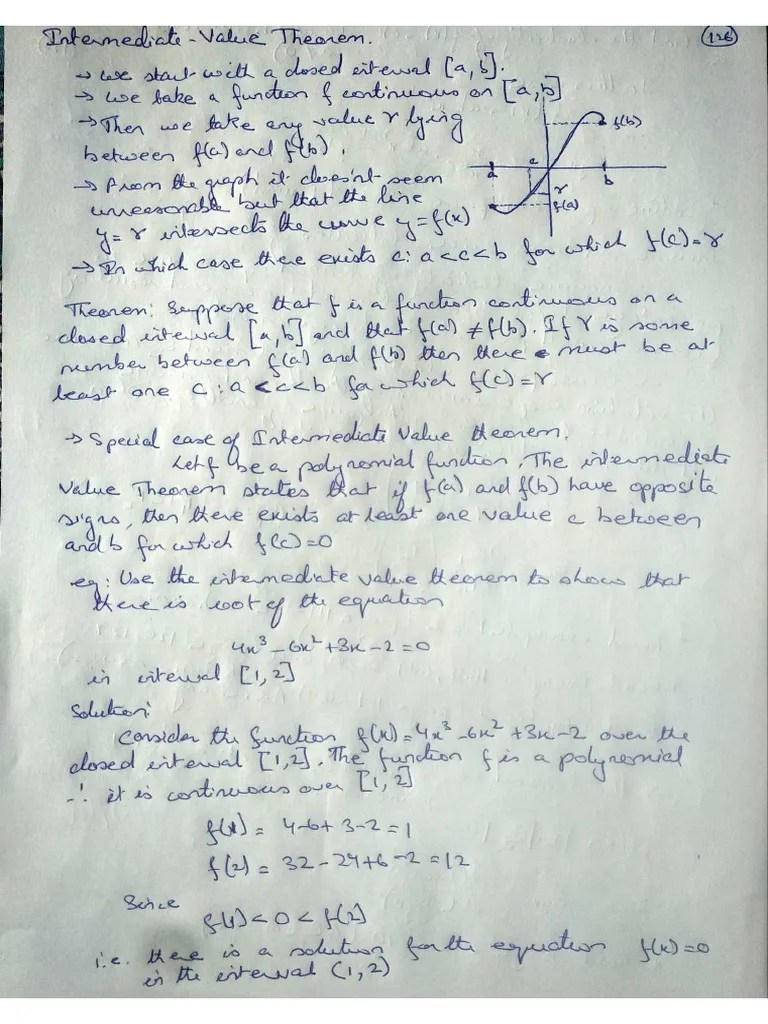 Intermediate-Value Theorem.
126
→ We start with a closed interval [a,b].
→ We take a function f continuous on [a,b]
→ Then we take any value r lying
between f(a) and f(b).
→ From the graph it doesn't seem
unreasonable but that the line
y=r intersects the curve y=f(x)
→ In which case there exists c: a<c<b for which f(c)=r
f(b)
a
c
b
r
f(a)
Theorem: Suppose that f is a function continuous on a
closed interval [a,b] and that f(a) ≠ f(b). If r is some
number between f(a) and f(b) then there must be at
least one c: a<c<b for which f(c)=r
→ Special case of Intermediate Value theorem.
Let f be a polynomial function, The intermediate
Value Theorem states that if f(a) and f(b) have opposite
signs, then there exists at least one value c between
and b for which f(c)=0
eg: Use the intermediate value theorem to show that
there is root of the equation
4x³-6x²+3x-2=0
in interval [1,2]
Solution:
Consider the function f(x)=4x³-6x²+3x-2 over the
closed interval [1,2]. The function f is a polynomial
∴ it is continuous over [1,2]
f(x) = 4-6+3-2=1
f(2) = 32-24+6-2=12
Since
f(1)<0<f(2)
i.e. there is a solution for the equation f(x)=0
in the interval (1,2)